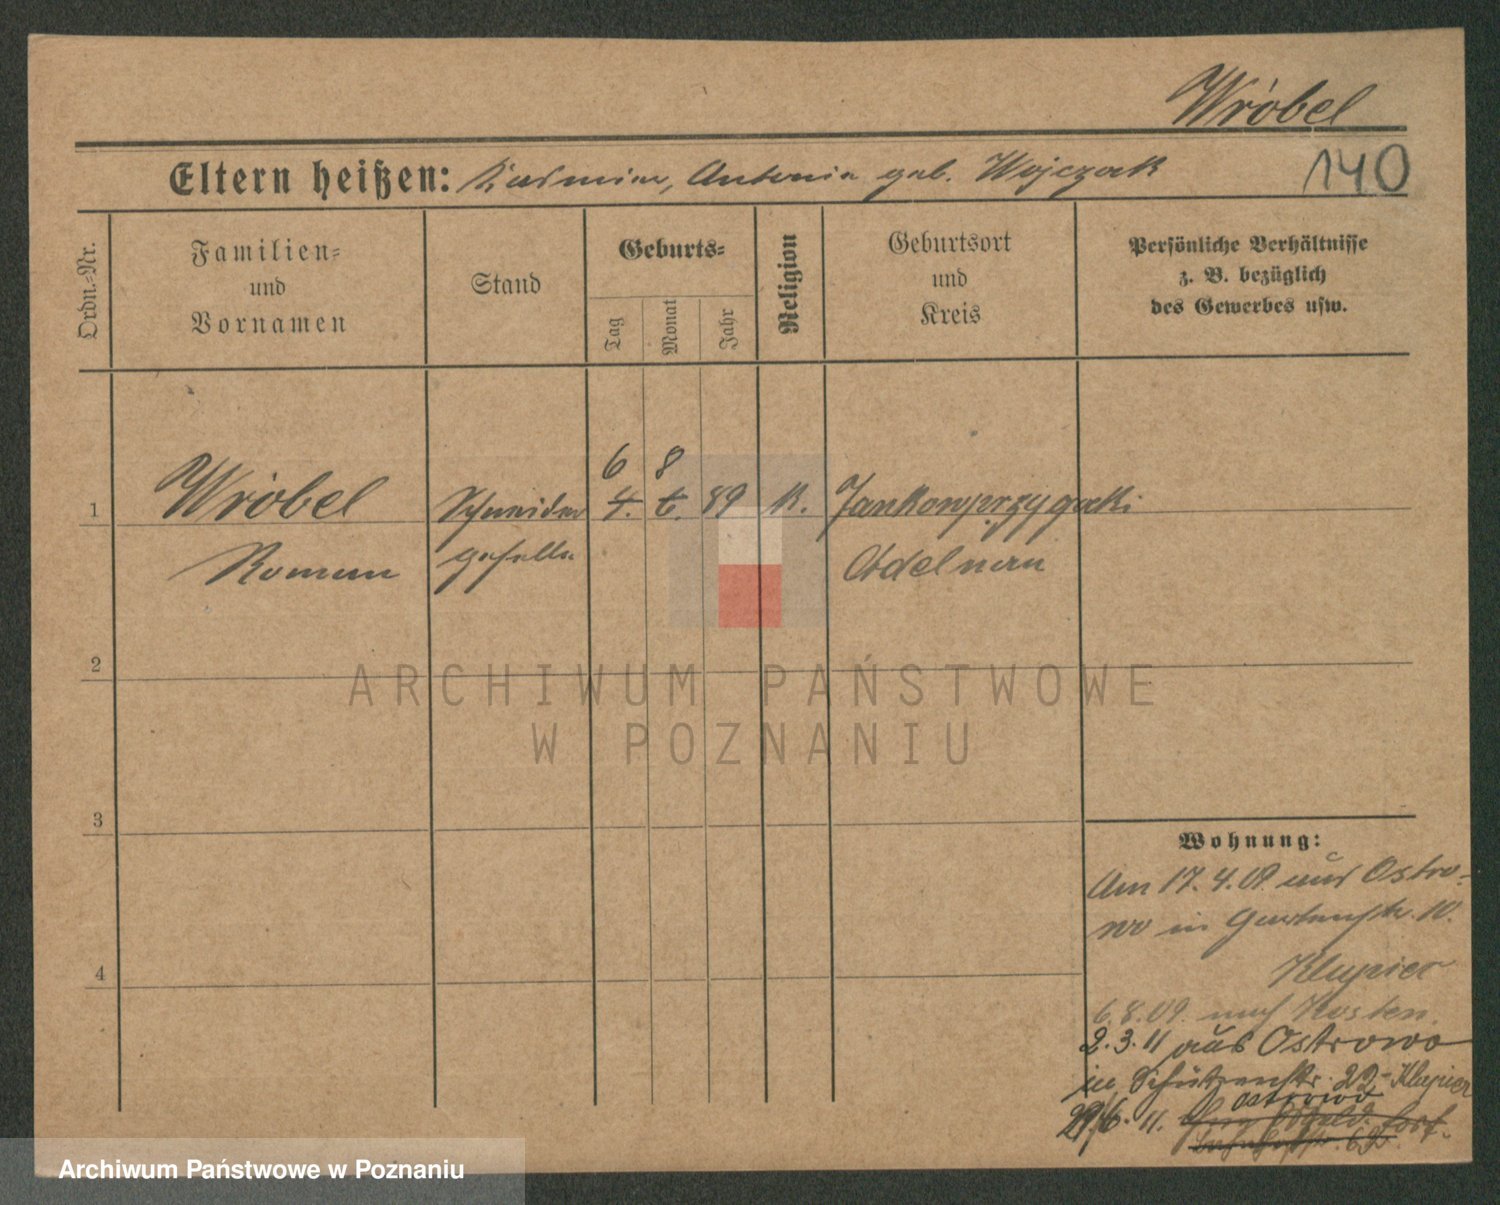 Wróbel
Eltern heißen: Kasimir, Antonia geb. Wojczak
140
Ordn.-Nr.
Familien-
und
Vornamen
Stand
Geburts-
Tag
Monat
Jahr
Religion
Geburtsort
und
Kreis
Persönliche Verhältnisse
z. B. bezüglich
des Gewerbes usw.
6 8
1 Wróbel Schneider 4. 6. 89 K. Jankowprzygocki
Roman geselle Adelnau
2
ARCHIWUM PAŃSTWOWE
W POZNANIU
3
4
Wohnung:
Am 17.4.09 aus Ostro-
wo in Gartenstr. 10.
Klupier
6.8.09. nach Kosten.
2.3.11 aus Ostrowo
in Schützenstr. 22 - Klupier
Ostrowo
29/6. 11.
Archiwum Państwowe w Poznaniu